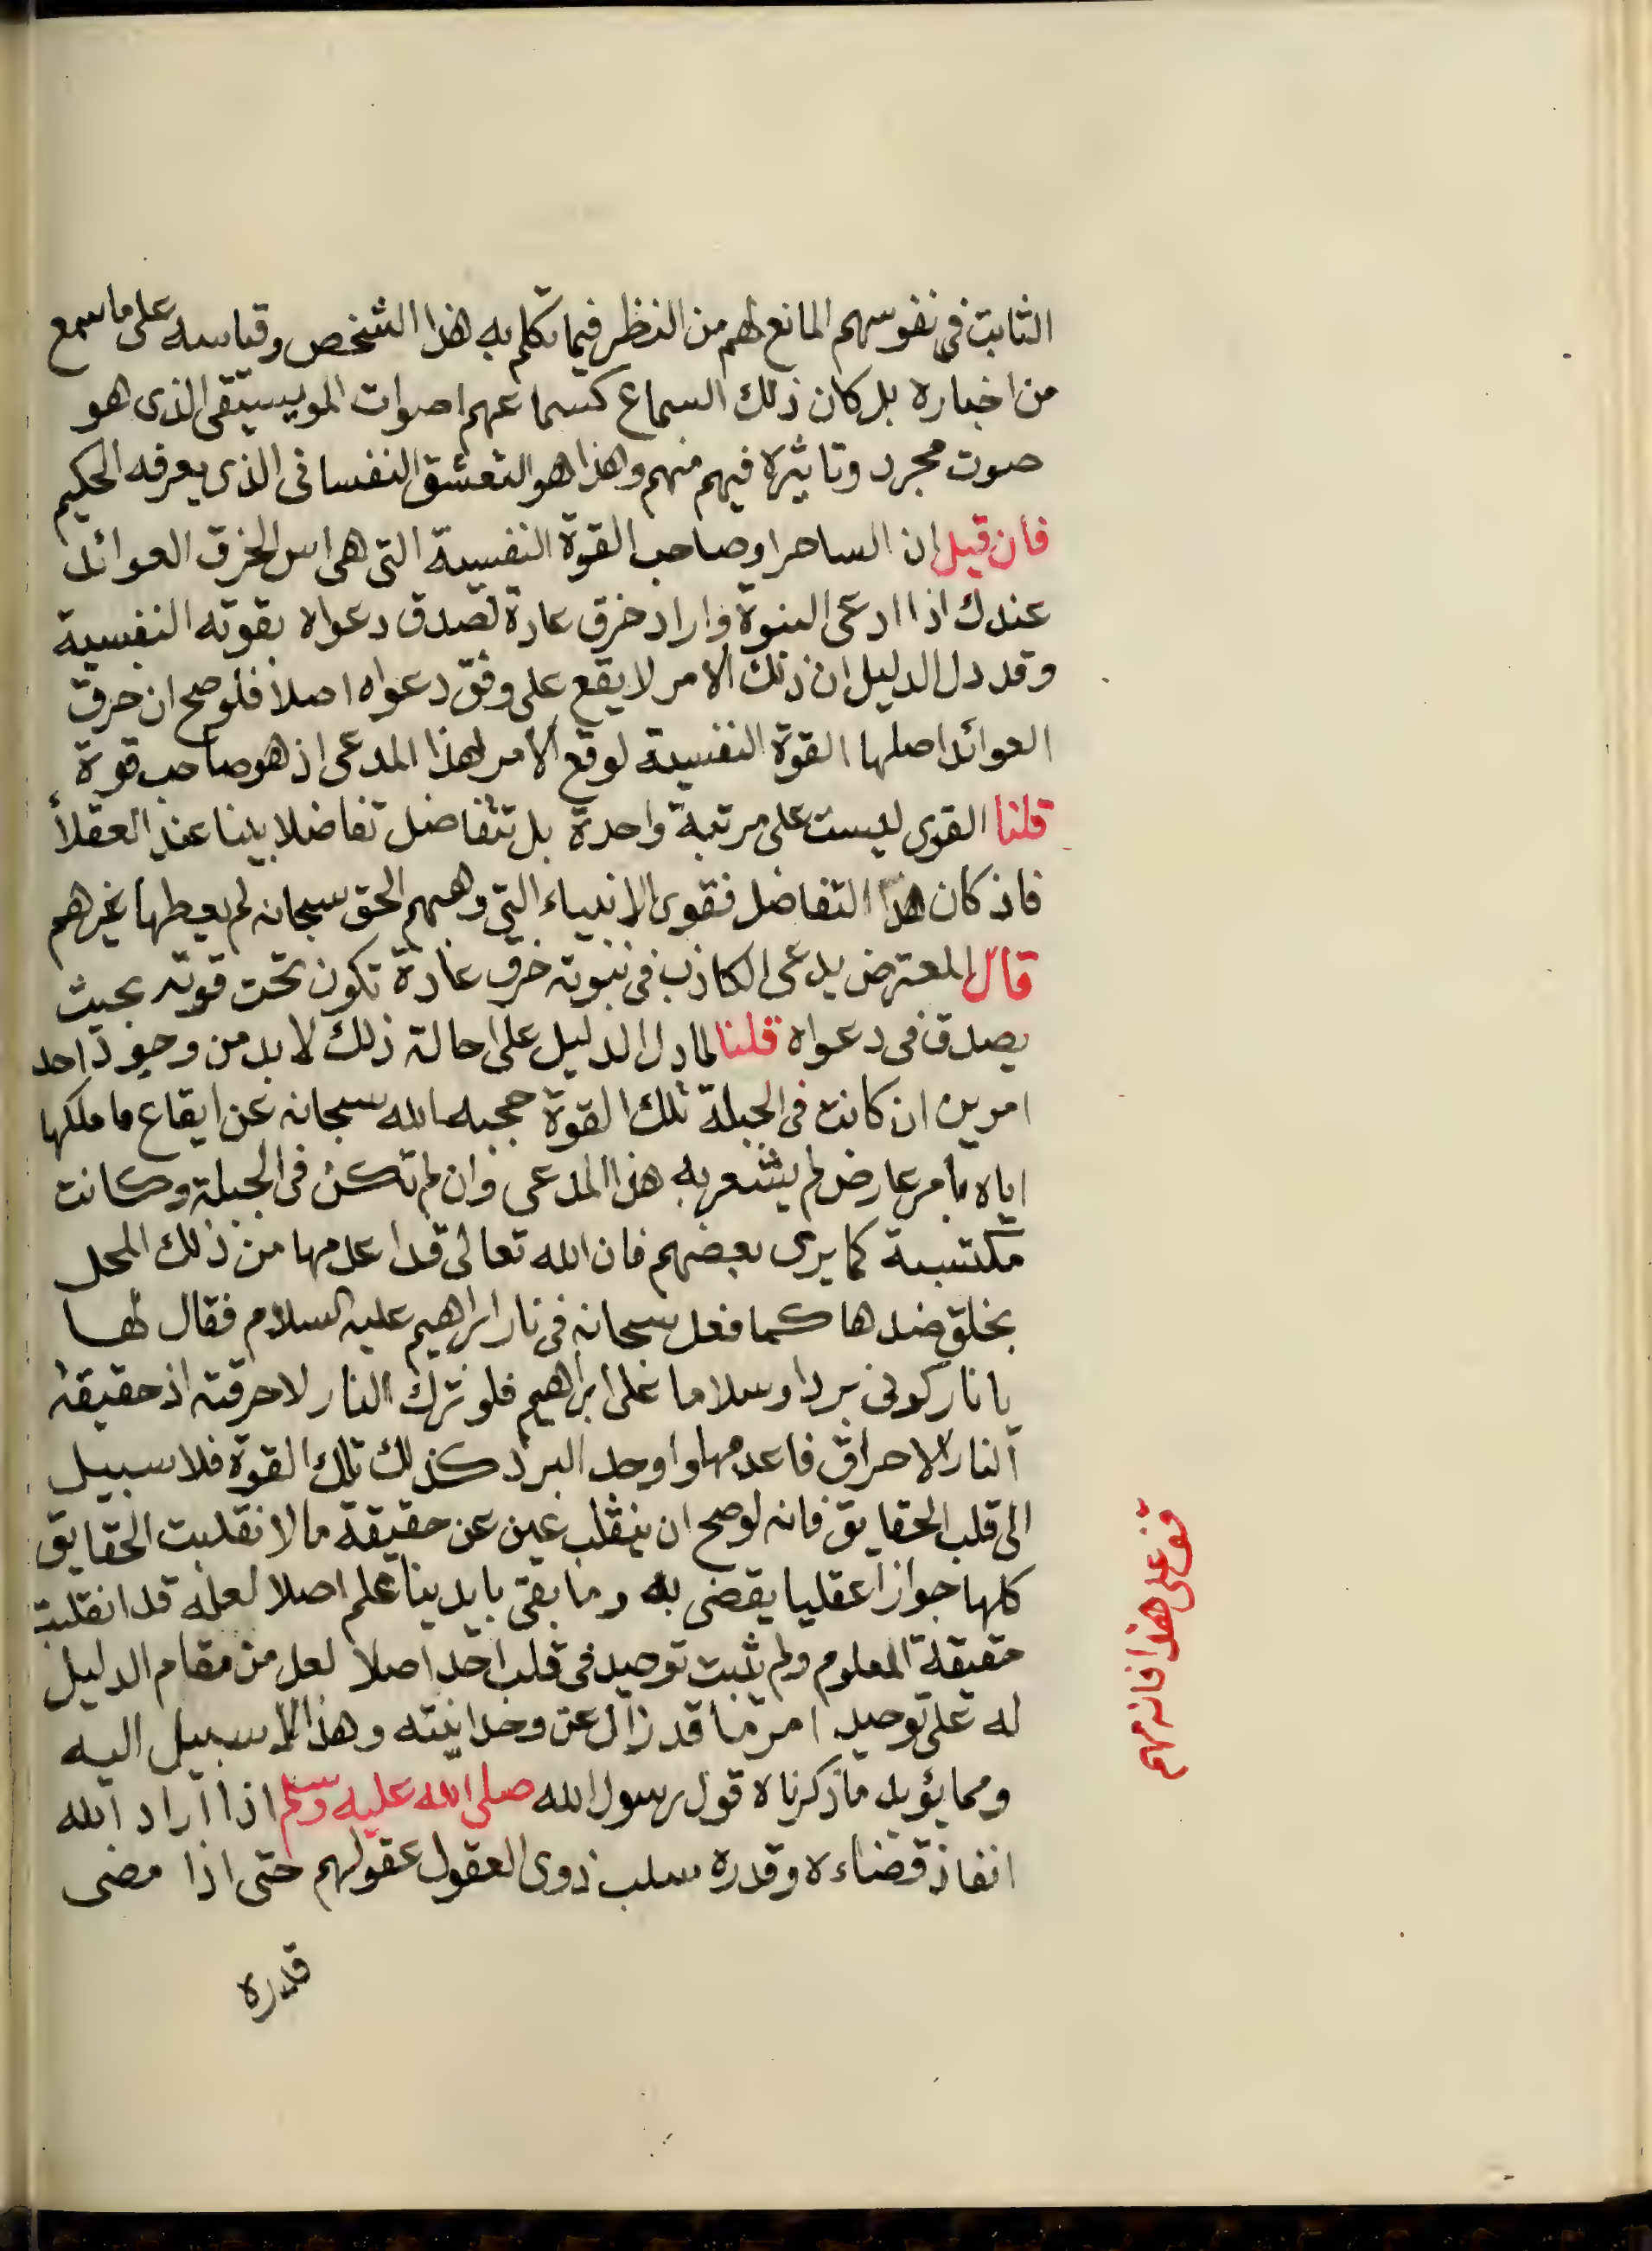 الثابت فى نفوسهم المانع لهم من النظر فيما تكلم به هذا الشخص وقياسه على ما سمع
من اخباره بل كان ذلك السماع كسماعهم اصوات المويسيقى الذى هو
صوت مجرد وتاثيره فيهم منهم وهذا هو التعشق النفسانى الذى يعرفه الحكيم
فان قيل ان الساحر او صاحب القوة النفسية التى هى اس لخرق العوائد
عندك اذا ادعى النبوة واراد خرق عادة لصدق دعواه بقوته النفسية
وقد دل الدليل ان ذلك الامر لا يقع على وفق دعواه اصلا فلو صح ان خرق
العوائد اصلها القوة النفسية لوقع الامر لهذا المدعى اذ هو صاحب قوة
قلنا القوى ليست على مرتبة واحدة بل تتفاضل تفاضلا بينا عند العقلاء
فاذ كان هذا التفاضل فقوى الانبياء التى وهبهم الحق سبحانه لم يعطها غيرهم
قال المعترض يدعى الكاذب فى نبوته خرق عادة تكون تحت قوته بحيث
يصدق فى دعواه قلنا لما دل الدليل على احالة ذلك لا بد من وجود احد
امرين ان كانت فى الجبلة تلك القوة حجبه الله سبحانه عن ايقاع ما ملكها
اياه بامر عارض لم يشعر به هذا المدعى وان لم تكن فى الجبلة وكانت
مكتسبة كما يرى بعضهم فان الله تعالى قد اعدمها من ذلك المحل
بخلق ضدها كما فعل سبحانه فى نار ابراهيم عليه السلام فقال لها
يا نار كونى بردا وسلاما على ابراهيم فلو ترك النار لاحرقته اذ حقيقة
النار الاحراق فاعدمها واوجد البرد كذلك تلك القوة فلا سبيل
الى قلب الحقايق فانه لو صح ان ينقلب عين عن حقيقة ما لانقلبت الحقايق
كلها جوازا عقليا يقضى به وما بقى بايدينا علم اصلا لعله قد انقلبت
حقيقة المعلوم ولم يثبت توحيد فى قلب احد اصلا لعل من مقام الدليل
له على توحيد امر ما قد زال عن وحدانيته وهذا لا سبيل اليه
ومما يؤيد ما ذكرناه قول رسول الله صلى الله عليه وسلم اذا اراد الله
انفاذ قضاءه وقدره سلب ذوى العقول عقولهم حتى اذا مضى
قدره
قف على هذا فانه مهم